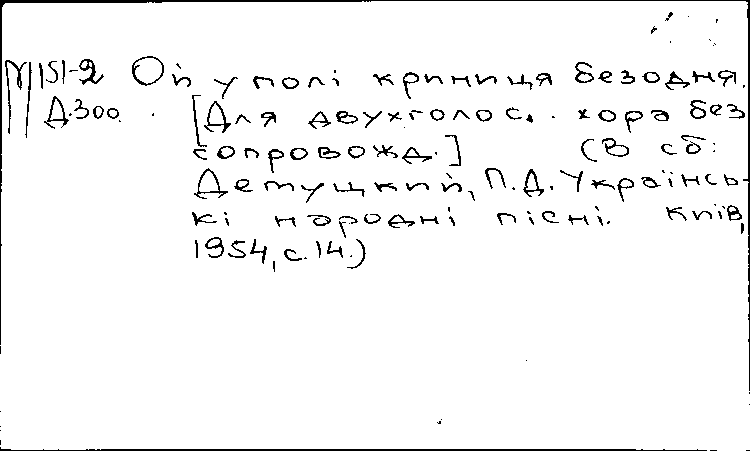 М151-2 Ой у полі криниця безодня.
Д.300. [Для двухголос. хора без
сопровожд.] (В сб:
Демуцкий, П.Д. Українсь-
кі народні пісні. Київ,
1954, с.14.)